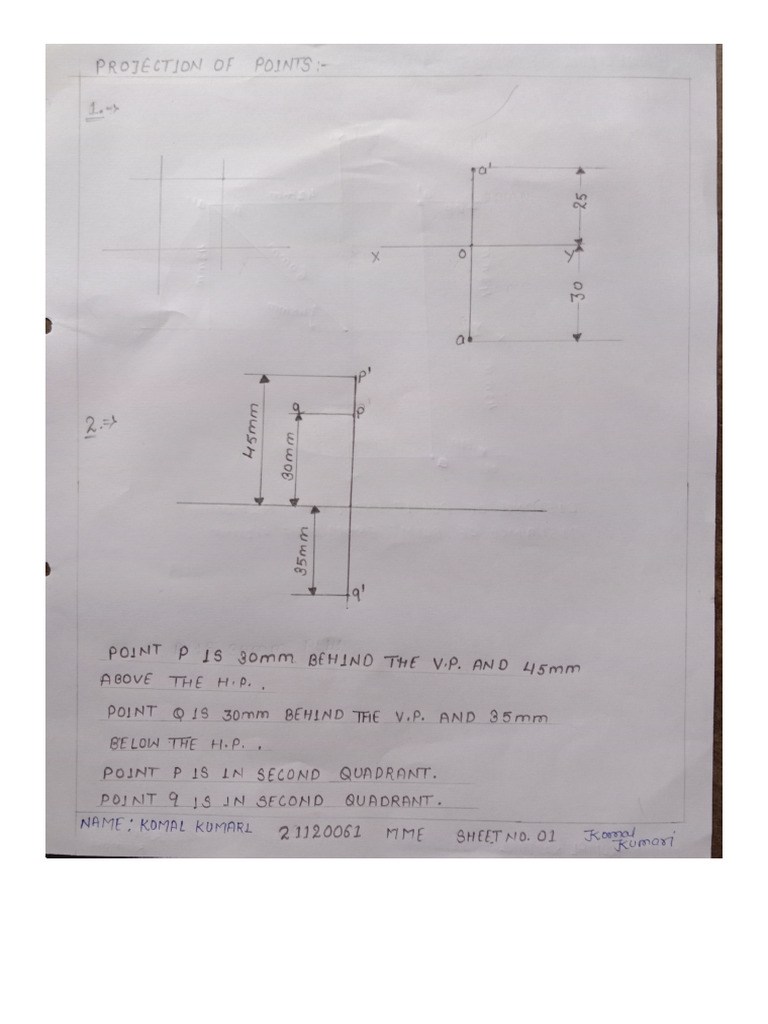 PROJECTION OF POINTS:-
1.⇒
a'
25
X
O
Y
30
a
p'
q
p
2.⇒
45mm
30mm
35mm
q'
POINT P IS 30mm BEHIND THE V.P. AND 45mm
ABOVE THE H.P..
POINT Q IS 30mm BEHIND THE V.P. AND 35mm
BELOW THE H.P..
POINT P IS IN SECOND QUADRANT.
POINT q IS IN SECOND QUADRANT.
NAME: KOMAL KUMARI 21120061 MME SHEET NO. 01 Komal
Kumari